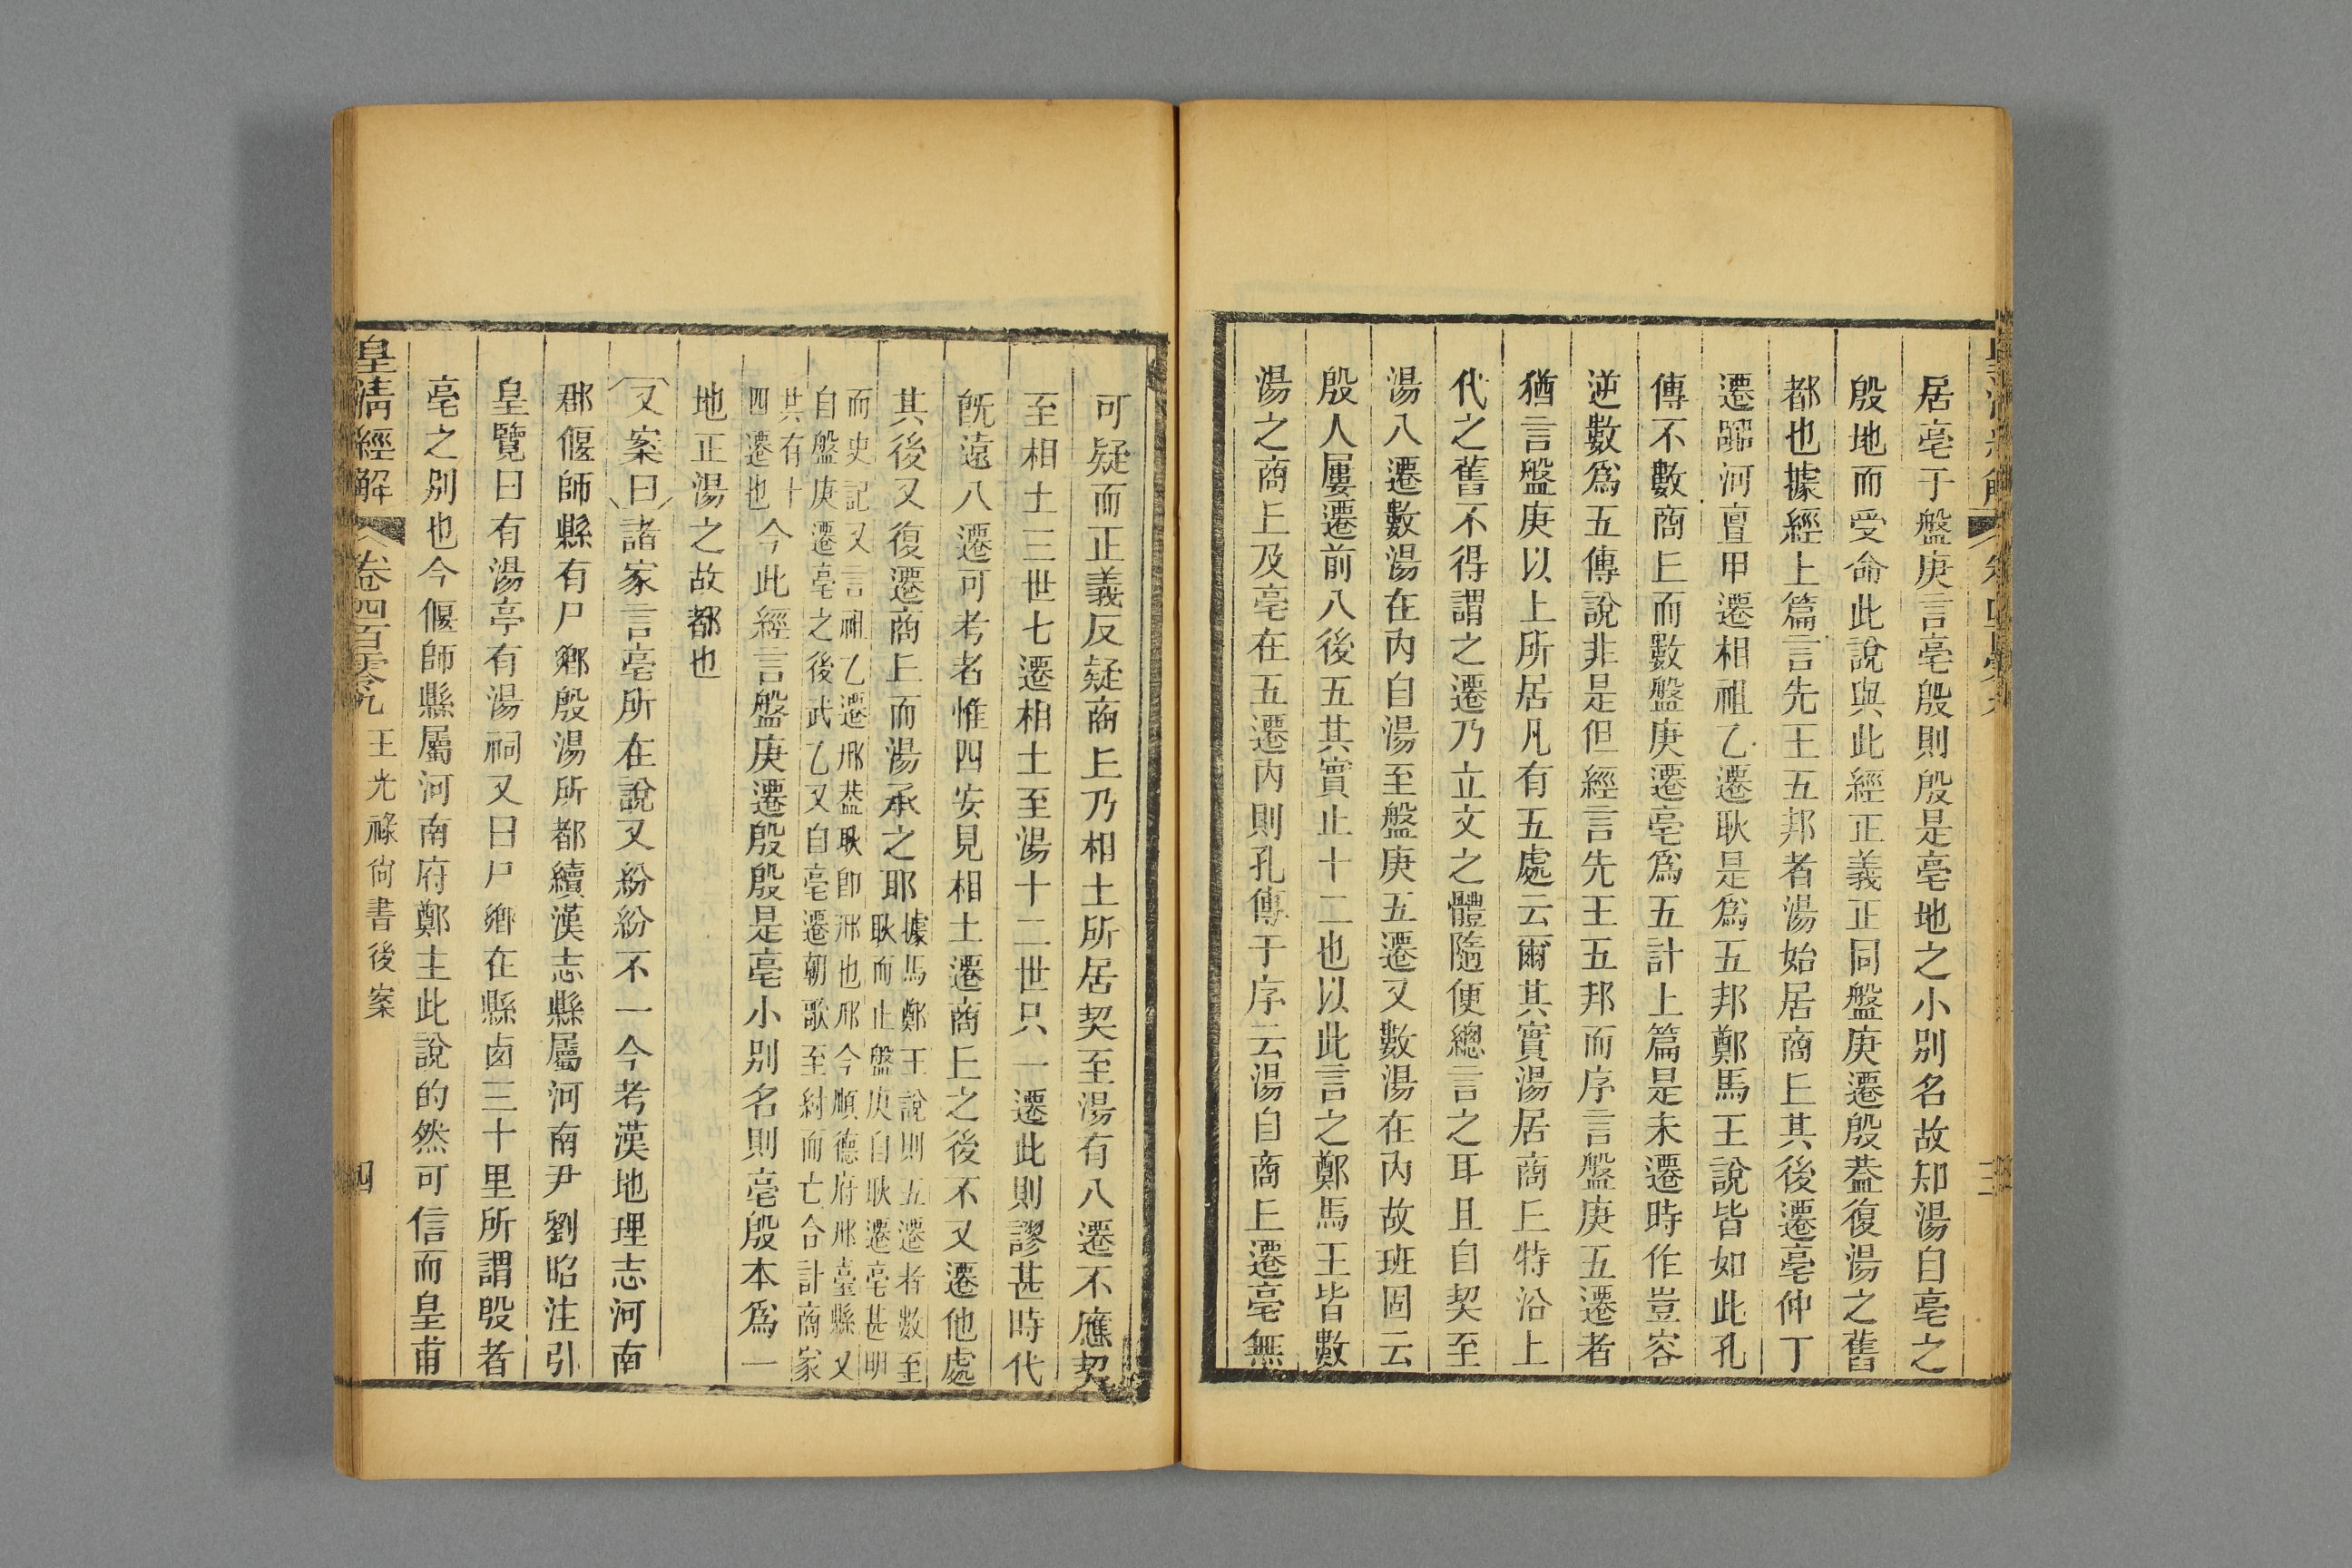 居亳于盤庚言亳殷則殷是亳地之小别名故知湯自亳之
殷地而受命此說與此經正義正同盤庚遷殷葢復湯之舊
都也據經上篇言先王五邦者湯始居商丘其後遷亳仲丁
遷嚻河亶甲遷相祖乙遷耿是爲五邦鄭馬王說皆如此孔
傳不數商丘而數盤庚遷亳爲五計上篇是未遷時作豈容
逆數爲五傳說非是但經言先王五邦而序言盤庚五遷者
猶言盤庚以上所居凡有五處云爾其實湯居商丘特沿上
代之舊不得謂之遷乃立文之體隨便總言之耳且自契至
湯八遷數湯在內自湯至盤庚五遷又數湯在內故班固云
殷人屢遷前八後五其實止十二也以此言之鄭馬王皆數
湯之商丘及亳在五遷內則孔傳于序云湯自商丘遷亳無
可疑而正義反疑商丘乃相土所居契至湯有八遷不應契
至相土三世七遷相土至湯十二世只一遷此則謬甚時代
旣遠八遷可考者惟四安見相土遷商丘之後不又遷他處
其後又復遷商丘而湯承之耶據馬鄭王說則五遷者數至
耿而止盤庚自耿遷亳甚明
而史記又言祖乙遷邢葢耿卽邢也邢今順德府邢臺縣又
自盤庚遷亳之後武乙又自亳遷朝歌至紂而亡合計商家
共有十
四遷也今此經言盤庚遷殷殷是亳小别名則亳殷本爲一
地正湯之故都也
又案曰諸家言亳所在說又紛紛不一今考漢地理志河南
郡偃師縣有尸鄕殷湯所都續漢志縣屬河南尹劉昭注引
皇覽曰有湯亭有湯祠又曰尸鄕在縣西三十里所謂殷者
亳之别也今偃師縣屬河南府鄭主此說的然可信而皇甫
皇淸經解 卷四百零九 王光祿尙書後案 四